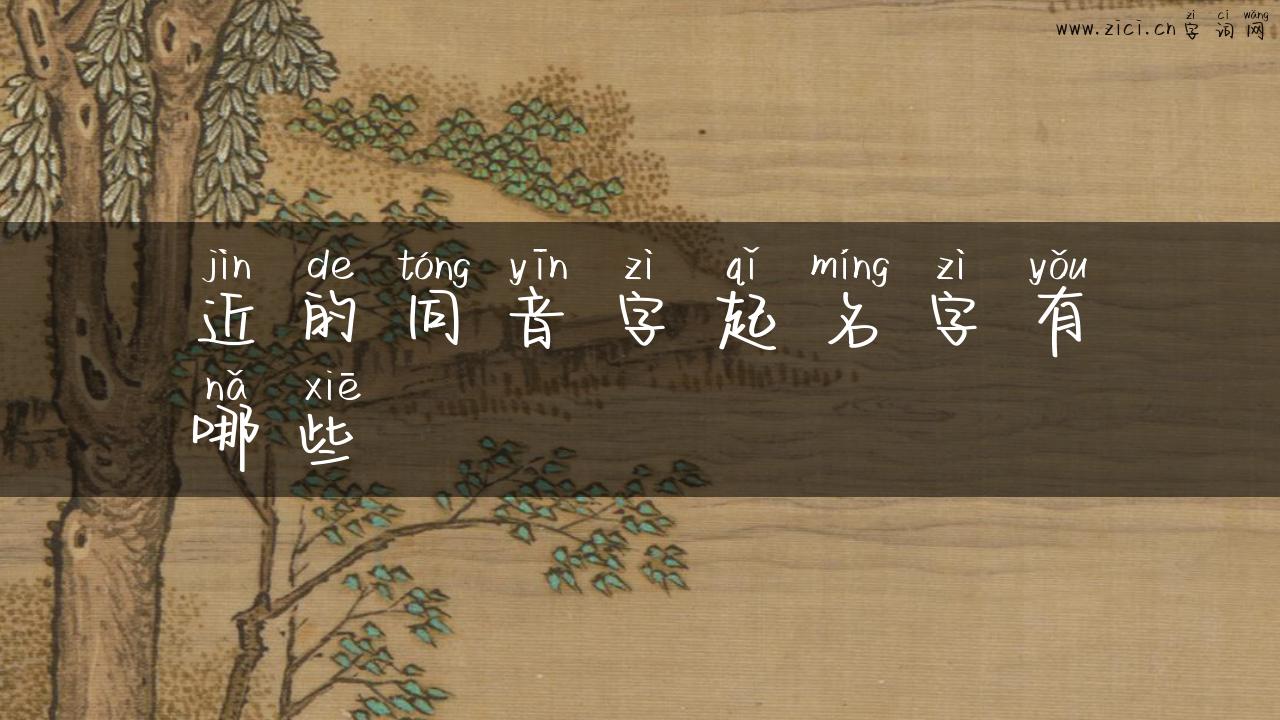 zì cí wǎng
www.zici.cn 字词网
jìn de tóng yīn zì qǐ míng zì yǒu
近的同音字起名字有
nǎ xiē
哪些